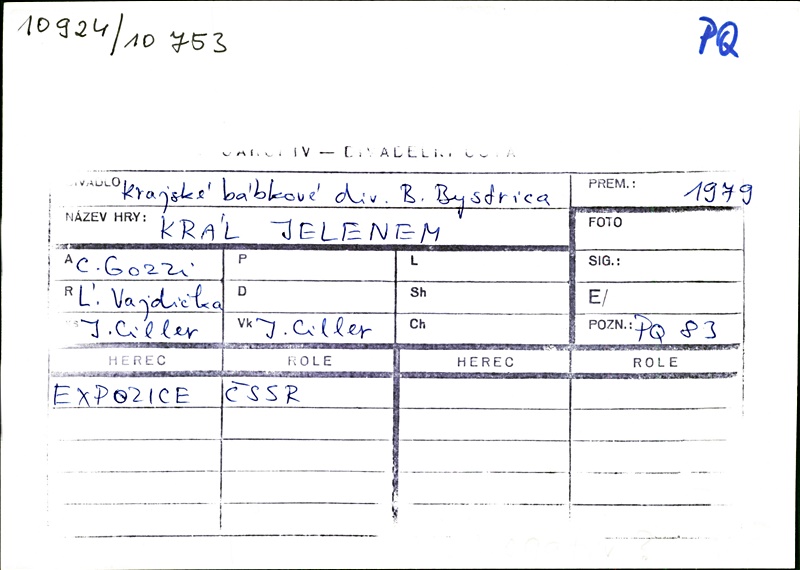 10924/10 753
PQ
DIVADLO krajské bábkové div. B. Bystrica PREM.: 1979
NÁZEV HRY: KRÁL JELENEM FOTO
A C. Gozzi P L SIG.:
R Ĺ. Vajdička D Sh E/
J. Ciller Vk J. Ciller Ch POZN.: PQ 83
HEREC ROLE HEREC ROLE
EXPOZICE ČSSR